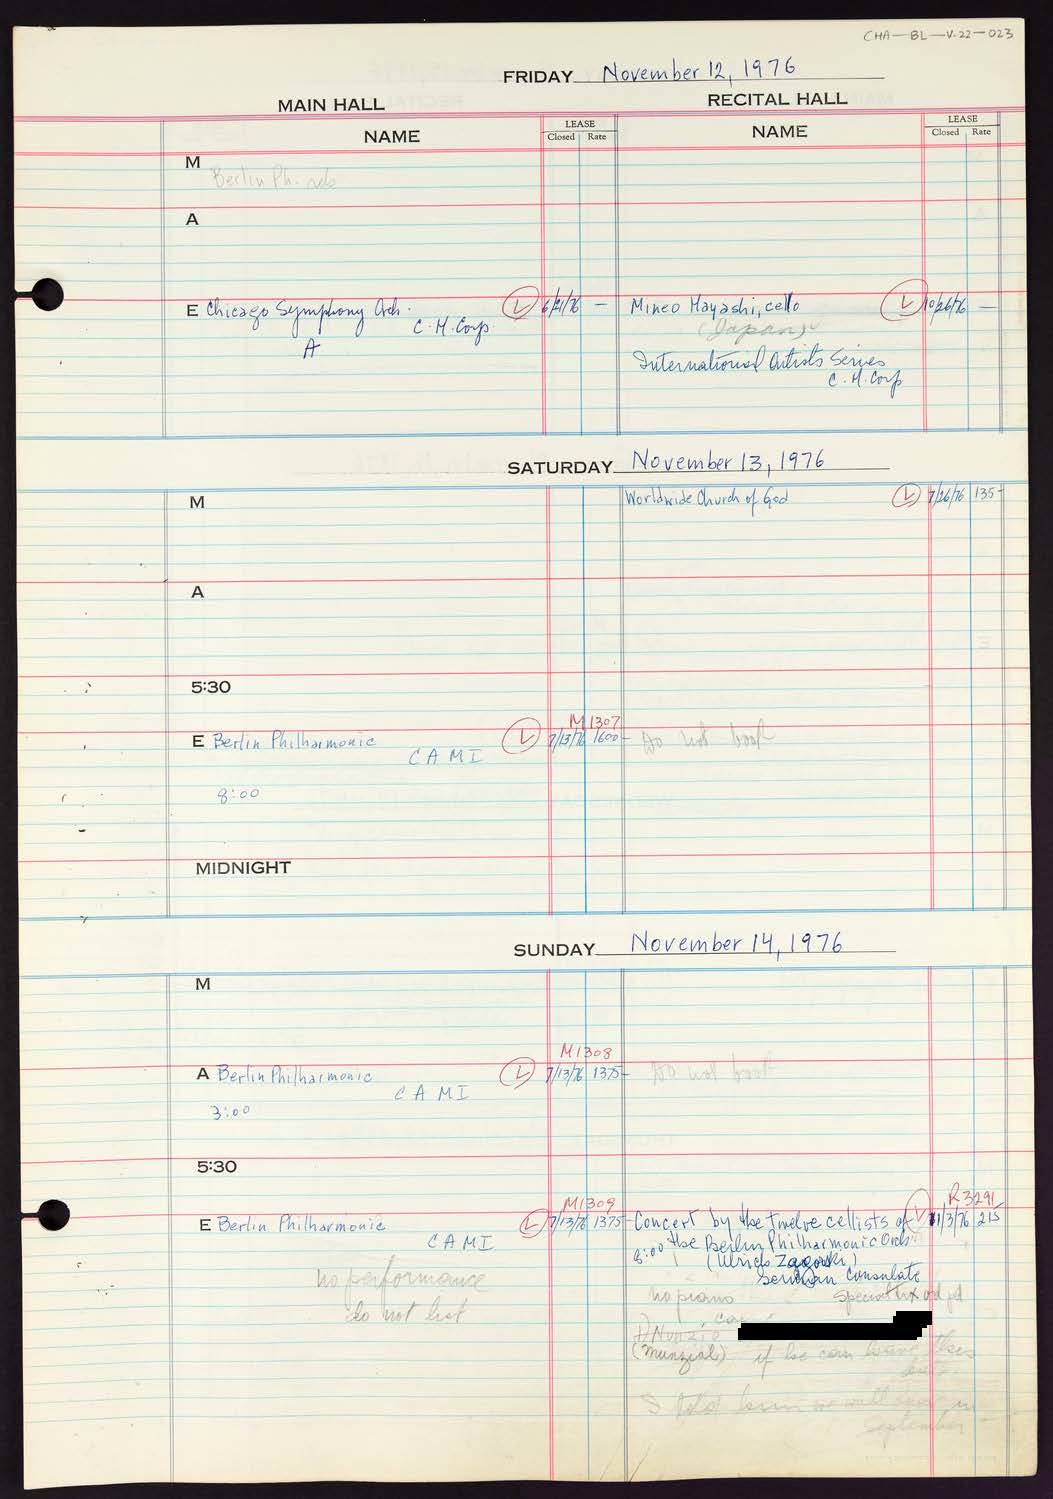 CHA-BL-V-22-023
FRIDAY November 12, 1976
MAIN HALL
RECITAL HALL
NAME
LEASE
Closed Rate
NAME
LEASE
Closed Rate
M
Berlin Ph.
A
E Chicago Symphony Orch. L 6/21/76 —
C.H. Corp
A
Mineo Hayashi, cello L 10/26/76 —
(Japan)
International Artists Series
C.H. Corp
SATURDAY November 13, 1976
M
Worldwide Church of God L 7/26/76 135-
A
5:30
M1307
E Berlin Philharmonic L 7/13/76 1600-
CAMI
8:00
Do not book
MIDNIGHT
SUNDAY November 14, 1976
M
M1308
A Berlin Philharmonic L 7/13/76 1375-
CAMI
3:00
Do not book
5:30
M1309
E Berlin Philharmonic L 7/13/76 1375-
CAMI
no performance
do not list
R3291
Concert by the twelve cellists of L 11/3/76 215
8:00 the Berlin Philharmonic Orch
(Ulrich
German Consulate
no piano
D'Nunzio
(Munzial) if he can leave
I told him we will know in
September